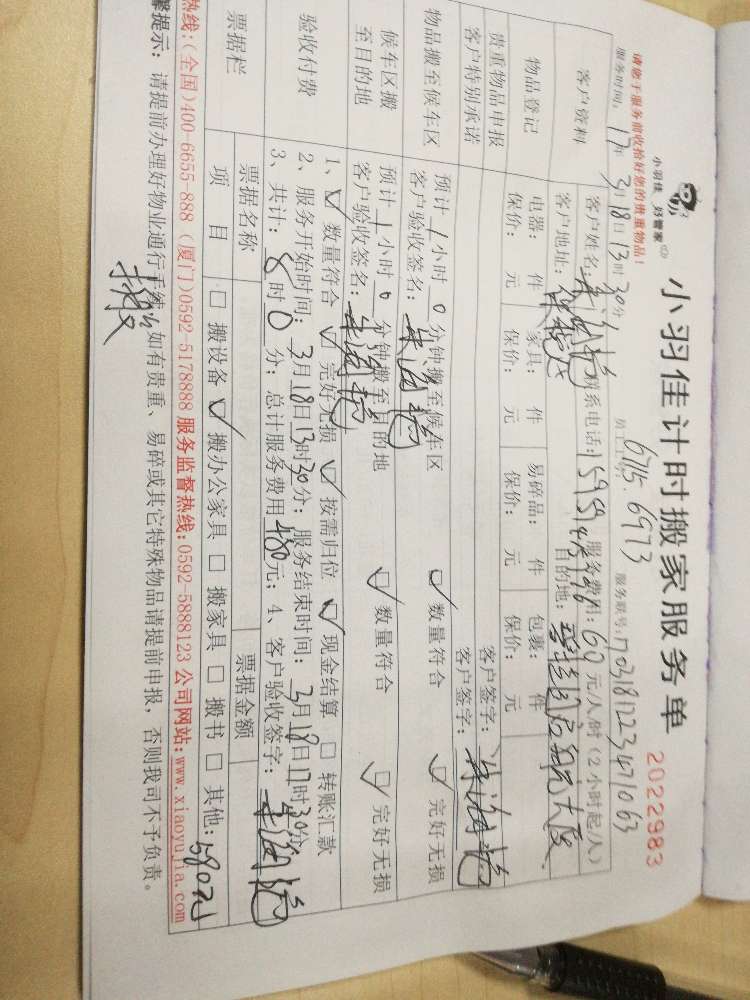 小羽佳 好管家
小羽佳计时搬家服务单
2022983
请您于服务前收拾好您的贵重物品!
员工工号: 6715. 6973
服务时间: 17年 3月 18日 13时 30分
服务联号: 170318122347063
客户资料
客户姓名: 联系电话: 服务费用: 60 元/人/时 (2小时起/人)
客户地址: 目的地:
物品登记
电器: 件 家具: 件 易碎品: 件 包裹: 件
保价: 元 保价: 元 保价: 元 保价: 元
贵重物品申报 客户签字:
客户特别承诺 客户签字:
物品搬至候车区
预计 1 小时 0 分钟搬至候车区 数量符合 完好无损
客户验收签名:
候车区搬至目的地
预计 1 小时 0 分钟搬至目的地 数量符合 完好无损
客户验收签名:
验收付费
1、 数量符合 完好无损 按需归位 现金结算 转账汇款
2、服务开始时间: 3月18日13时30分; 服务结束时间: 3月18日17时30分
3、共计: 8 时 0 分; 总计服务费用 480 元; 4、客户验收签字:
票据栏
票据名称 票据金额
项目 搬设备 搬办公家具 搬家具 搬书 其他: 580元
热线:(全国)400-6655-888 (厦门)0592-5178888 服务监督热线:0592-5888123 公司网站:www.xiaoyujia.com
馨提示: 请提前办理好物业通行手续, 如有贵重、易碎或其它特殊物品请提前申报, 否则我司不予负责。